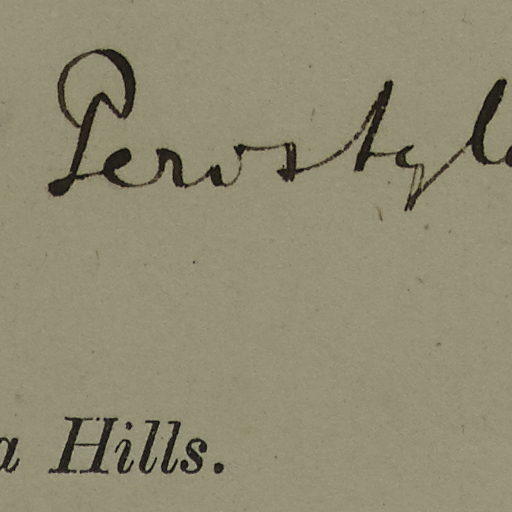 Perostyl
a Hills.